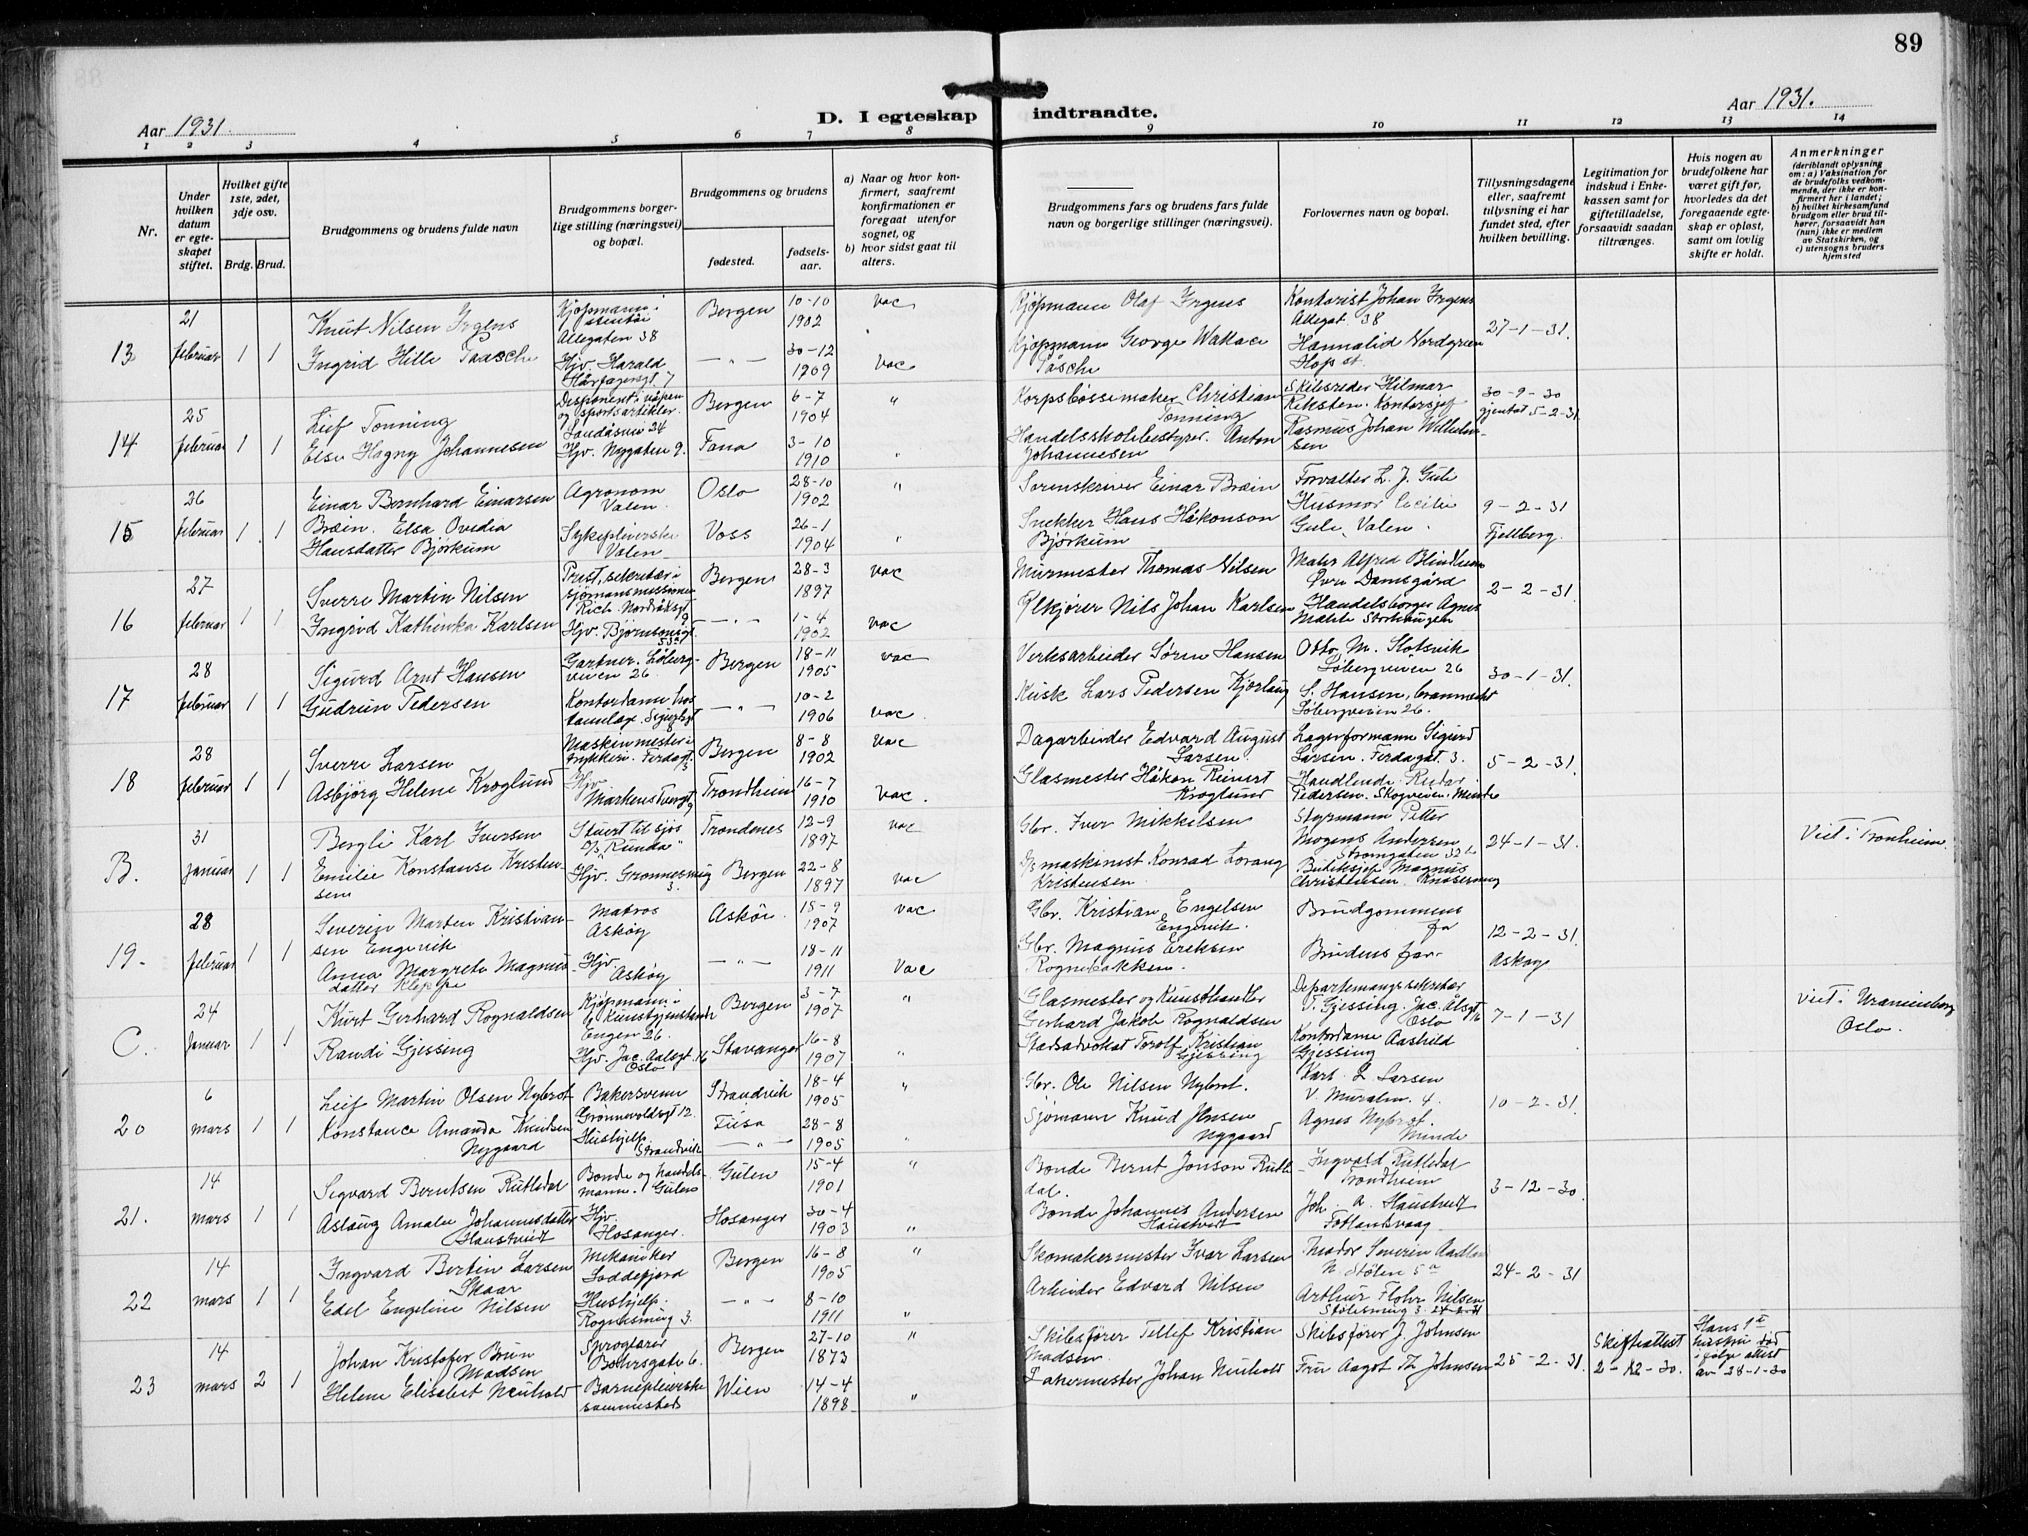 89
Aar 1931.
D. I egteskap indtraadte.
Aar 1931.
1 2 3 4 5 6 7 8 9 10 11 12 13 14
Nr.
Under hvilken datum er egteskapet stiftet.
Hvilket gifte 1ste, 2det, 3dje osv.
Brdg. Brud.
Brudgommens og brudens fulde navn
Brudgommens borgerlige stilling (næringsvei) og bopæl.
Brudgommens og brudens
fødested.
fødselsaar.
a) Naar og hvor konfirmert, saafremt konfirmationen er foregaat utenfor sognet, og
b) hvor sidst gaat til alters.
Brudgommens fars og brudens fars fulde navn og borgerlige stillinger (næringsvei).
Forlovernes navn og bopæl.
Tillysningsdagene eller, saafremt tillysning ei har fundet sted, efter hvilken bevilling.
Legitimation for indskud i Enkekassen samt for giftetilladelse, forsaavidt saadan tiltrænges.
Hvis nogen av brudefolkene har været gift før, hvorledes da det foregaaende egteskap er opløst, samt om lovlig skifte er holdt.
Anmerkninger
(deriblandt oplysning om: a) Vaksination for de brudefolks vedkommende, der ikke er konfirmert her i landet; b) hvilket kirkesamfund brudgom eller brud tilhører, forsaavidt han (hun) ikke er medlem av Statskirken, og c) utensogns bruders hjemsted
13 21 februar 1 1
Knut Nilsen Irgens
Kjøpmann i
Allegaten 38
Bergen 10-10 1902 vac
Kjøpmann Olaf Irgens
Kontorist Johan Irgens
Allegat. 38
27-1-31.
Ingrid Hille Paasche
Hjv. Harald
Hårfagersgt 7
— " — 30-12 1909 vac
Kjøpmann George Wallace
Påsche
Hop st.
14 25 februar 1 1
Leif Tonning
Disponent i våpen
og sportsartikler.
Landåsvei 24
Bergen 6-7 1904 "
Korpsbøssemaker Christian
Tonning
Skibsreder Hilmar
Reksten. Kontorsjef
Rasmus Johan Wilhelmsen
30-9-30
gjentat 5-2-31.
Else Hagny Johannesen
Hjv. Nygaten 9.
Fana 3-10 1910 "
Handelsskolebestyrer. Anton
Johannesen
15 26 februar 1 1
Einar Bernhard Einarsen
Bræin. Elsa Ovedia
Hansdatter Bjørkum
Agronom
Valen.
Oslo 28-10 1902 "
Sorenskriver Einar Bræin
Forvalter L. J. Gule
Husmor Cecilie
Gule, Valen.
9-2-31
Fjellberg.
Sykepleierske
Valen
Voss 26-1 1904 "
Snekker Hans Håkonson
Bjørkum
16 27 februar 1 1
Sverre Martin Nilsen
Prest, sekretær i
sjømansmissionen
Rich. Nordråksgt 9
Bergen 28-3 1897 vac
Murmester Thomas Nilsen
Maler Alfred Blindheim
Øvre Damsgård
2-2-31.
Ingrid Kathinka Karlsen
Hjv. Bjørnsonsgt.
— " — 1-4 1902 vac
Nils Johan Karlsen
Handelsborger Agnes
Malete Storhaugen
17 28 februar 1 1
Sigurd Arnt Hansen
Gartner. Løbergveien 26.
Bergen 18-11 1905 vac
Verksarbeider Søren Hansen
Otto M. Slotsvik
Løbergsveien 26
30-1-31.
Gudrun Pedersen
Kontordame
— " — 10-2 1906 vac.
Kusk Lars Pedersen Kjørlaug
S. Hansen,
Løbergsveien 26.
18 28 februar 1 1
Sverre Larsen
Maskinmester i
trykkeri. Ferdagt. 3
Bergen 8-8 1902 vac
Dagarbeider Edvard August
Larsen.
Lagerformann Sigurd
Larsen. Ferdagat. 3.
5-2-31.
Asbjørg Helene Kroglund
Hjv.
Trondheim 16-7 1910 vac.
Glasmester Håkon Reinert
Kroglund
Handlende Reidar
Pedersen. Skogveien. Minde
B. 31 januar 1 1
Bergli Karl Iversen
Stuert til sjøs
D/s "Runda"
Trondenes 12-9 1897 vac
Gbr. Iver Mikkelsen
Styrmann Petter
Mogens Andersen
Strømgaten
24-1-31.
Viet i Tronheim.
Emilie Konstanse Kristensen
Hjv. Grønnesmug 3.
Bergen 22-8 1897 vac
D/s maskinist Konrad Lorang
Kristensen.
Butiksjef Magnus
Christensen.
19. 28 februar 1 1
Severin Marten Kristiansen Engevik
Matros
Askøy
Askøi. 15-9 1907 vac
Gbr. Kristian Engelsen
Engevik.
Brudgommens
far
12-2-31.
Askøy
Anna Margrete Magnusdatter Kleppe
Hjv.
Askøy
— " — 18-11 1911 Vac
Gbr. Magnus Eriksen
Rognebakken.
Brudens far
C. 24 Januar 1 1
Kurt Gerhard Rognaldsen
Kjøpmann i
Engen 26.
Bergen 3-7 1907 "
Glasmester og Kunsthandler
Gerhard Jakob Rognaldsen
Departementssekretær
T. Gjessing. Jac. Alsgt 16
Oslo
7-1-31
viet i Uranienborg
Oslo.
Randi Gjessing
Hjv. Jac. Aalsgt. 16
Oslo
Stavanger 16-8 1907 "
Statsadvokat Torolf Kristian
Gjessing
Kontordame Aashild
Gjessing
20 6 mars 1 1
Leif Martin Olsen Nybrot
Bakersvenn
Grønnevoldsgt 12.
Strandvik 18-4 1905 "
Gbr. Ole Nilsen Nybrot.
Karl L Larsen
V. Muralm. 4.
10-2-31.
Konstance Amanda Knudsen
Nygaard
Hushjelp.
Strandvik
Fusa — " — 28-8 1905 "
Sjømann Knud Jensen
Nygaard
Agnes Nybrot.
Minde
21. 14 mars 1 1
Sigvard Berntsen Rutledal
Bonde og handelsmann. Gulen
Gulen 15-4 1901 "
Bonde Bernt Jonson Rutledal.
Ingvald Rutledal
Trondheim
3-12-30.
Aslaug Amalie Johannesdatter
Haustveit
Hjv.
Hosanger.
Hosanger 30-4 1903 "
Bonde Johannes Andersen
Haustveit
Joh. A. Haustveit
Fotlandsvaag
22 14 mars 1 1
Ingvard Bertin Larsen
Skaar
Mekaniker
Loddefjord
Bergen 16-8 1905 "
Skomakermester Ivar Larsen
N. Stølen 5a
24-2-31
Edel Engeline Nilsen
Hushjelp.
Rognesmug 3.
— " — 8-10 1911 "
Arbeider Edvard Nilsen
Arthur Flohr Nilsen
Stølesmug 3. 24-2-31
23 14 mars 2 1
Johan Kristofer Brun
Madsen
Bergen 27-10 1873 "
Skibsfører Tellef Kristian
Madsen.
Skibsfører J. Johnsen
25-2-31.
Skifteattest
2-12-30.
Hans 1ste
hustru død
ifølge attest
av 28-1-30
Helene Elisabet Neuhold
Barnepleierske
sammesteds
Wien 14-4 1898 "
Johan Neuhold
Fru Aagot Th Johnsen